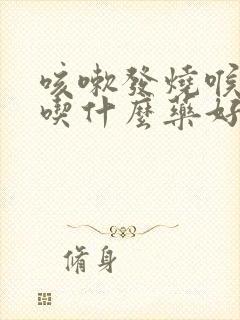 咳嗽發燒喉
喫什麼藥好
脩身